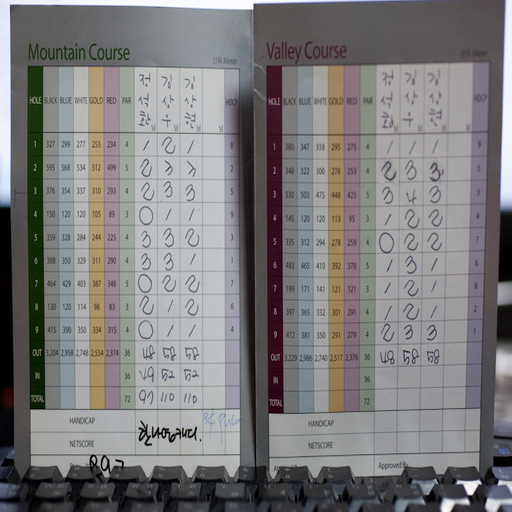 Mountain Course
HOLE BLACK BLUE WHITE GOLD RED PAR 정석환 김상우 김상현 HDCP
1 327 299 277 253 234 4 1 2 1 8
2 595 568 534 512 499 5 2 2
3 376 354 337 310 293 4 2 3 3 5
4 150 120 120 105 89 3 0 1 1 9
5 359 328 284 244 225 4 3 3 2 3
6 388 350 329 311 290 4 3 3 1 1
7 464 429 403 387 346 5 0 2 2 7
8 130 120 114 98 83 3 2 1 2 6
9 415 390 350 334 315 4 0 1 1 4
OUT 3,204 2,958 2,748 2,554 2,374 36 48 58 58
IN 36 49 52 52
TOTAL 72 97 110 110
HANDICAP
NETSCORE
Valley Course
HOLE BLACK BLUE WHITE GOLD RED PAR 정석환 김상우 김상현 HDCP
1 380 347 318 295 275 4 1 1 1 9
2 348 322 300 278 253 4 2 3 3 5
3 530 503 475 448 425 5 3 4 3 3
4 145 120 120 113 95 3 1 2 2
5 335 312 294 278 259 4 0 2 2
6 483 465 410 392 378 5 1 3 1
7 199 171 141 121 121 3 1 2 2
8 397 365 332 301 291 4 1 2 1 2
9 412 381 350 291 279 4 2 3 3 1
OUT 3,229 2,986 2,740 2,517 2,376 36 48 58 58
IN 36
TOTAL 72
HANDICAP
NETSCORE
Approved By